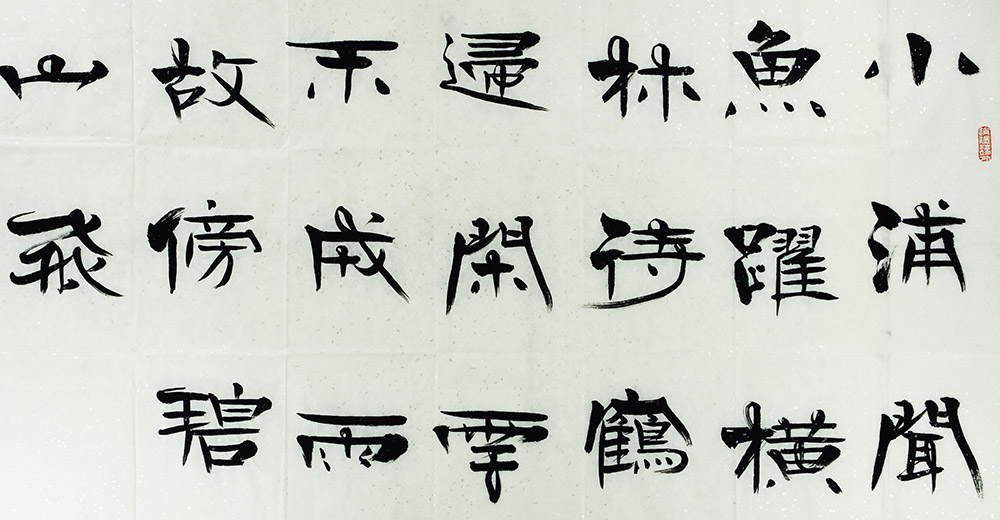 小浦聞
魚躍橫
林待鶴
歸閑雲
不成雨
故傍碧
山飛